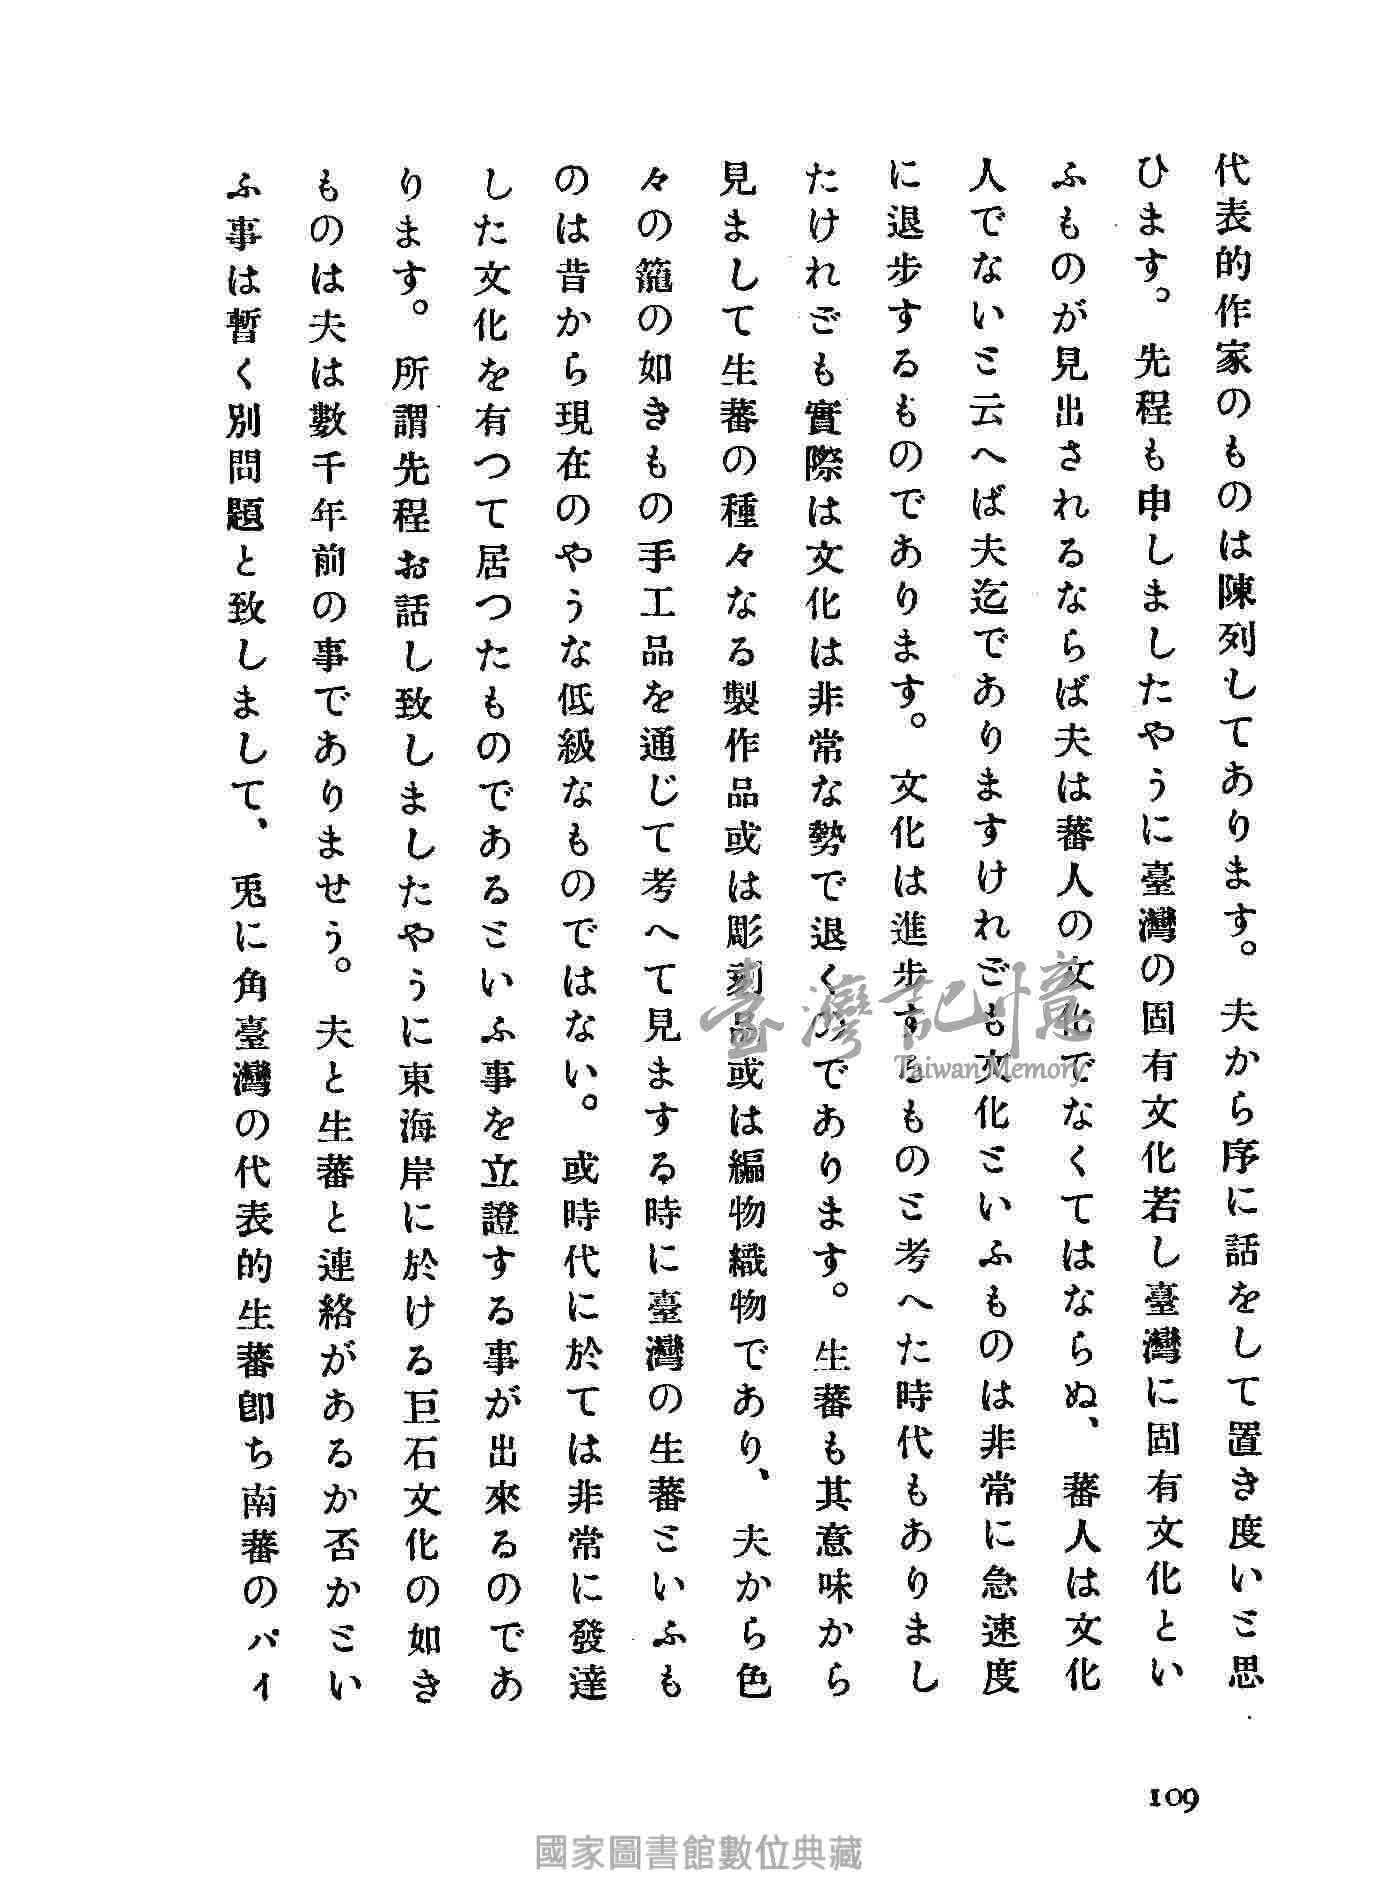 代表的作家のものは陳列してあります。夫から序に話をして置き度いと思
ひます。先程も申しましたやうに臺灣の固有文化若し臺灣に固有文化とい
ふものが見出されるならば夫は蕃人の文化でなくてはならぬ、蕃人は文化
人でないと云へば夫迄でありますけれども文化といふものは非常に急速度
に退步するものであります。文化は進步するものと考へた時代もありまし
たけれども實際は文化は非常な勢で退くのであります。生蕃も其意味から
見まして生蕃の種々なる製作品或は彫刻品或は編物織物であり、夫から色
々の籠の如きもの手工品を通じて考へて見まする時に臺灣の生蕃といふも
のは昔から現在のやうな低級なものではない。或時代に於ては非常に發達
した文化を有つて居つたものであるといふ事を立證する事が出來るのであ
ります。所謂先程お話し致しましたやうに東海岸に於ける巨石文化の如き
ものは夫は數千年前の事でありませう。夫と生蕃と連絡があるか否かとい
ふ事は暫く別問題と致しまして、兎に角臺灣の代表的生蕃卽ち南蕃のパイ
109
臺灣記憶
Taiwan Memory
國家圖書館數位典藏